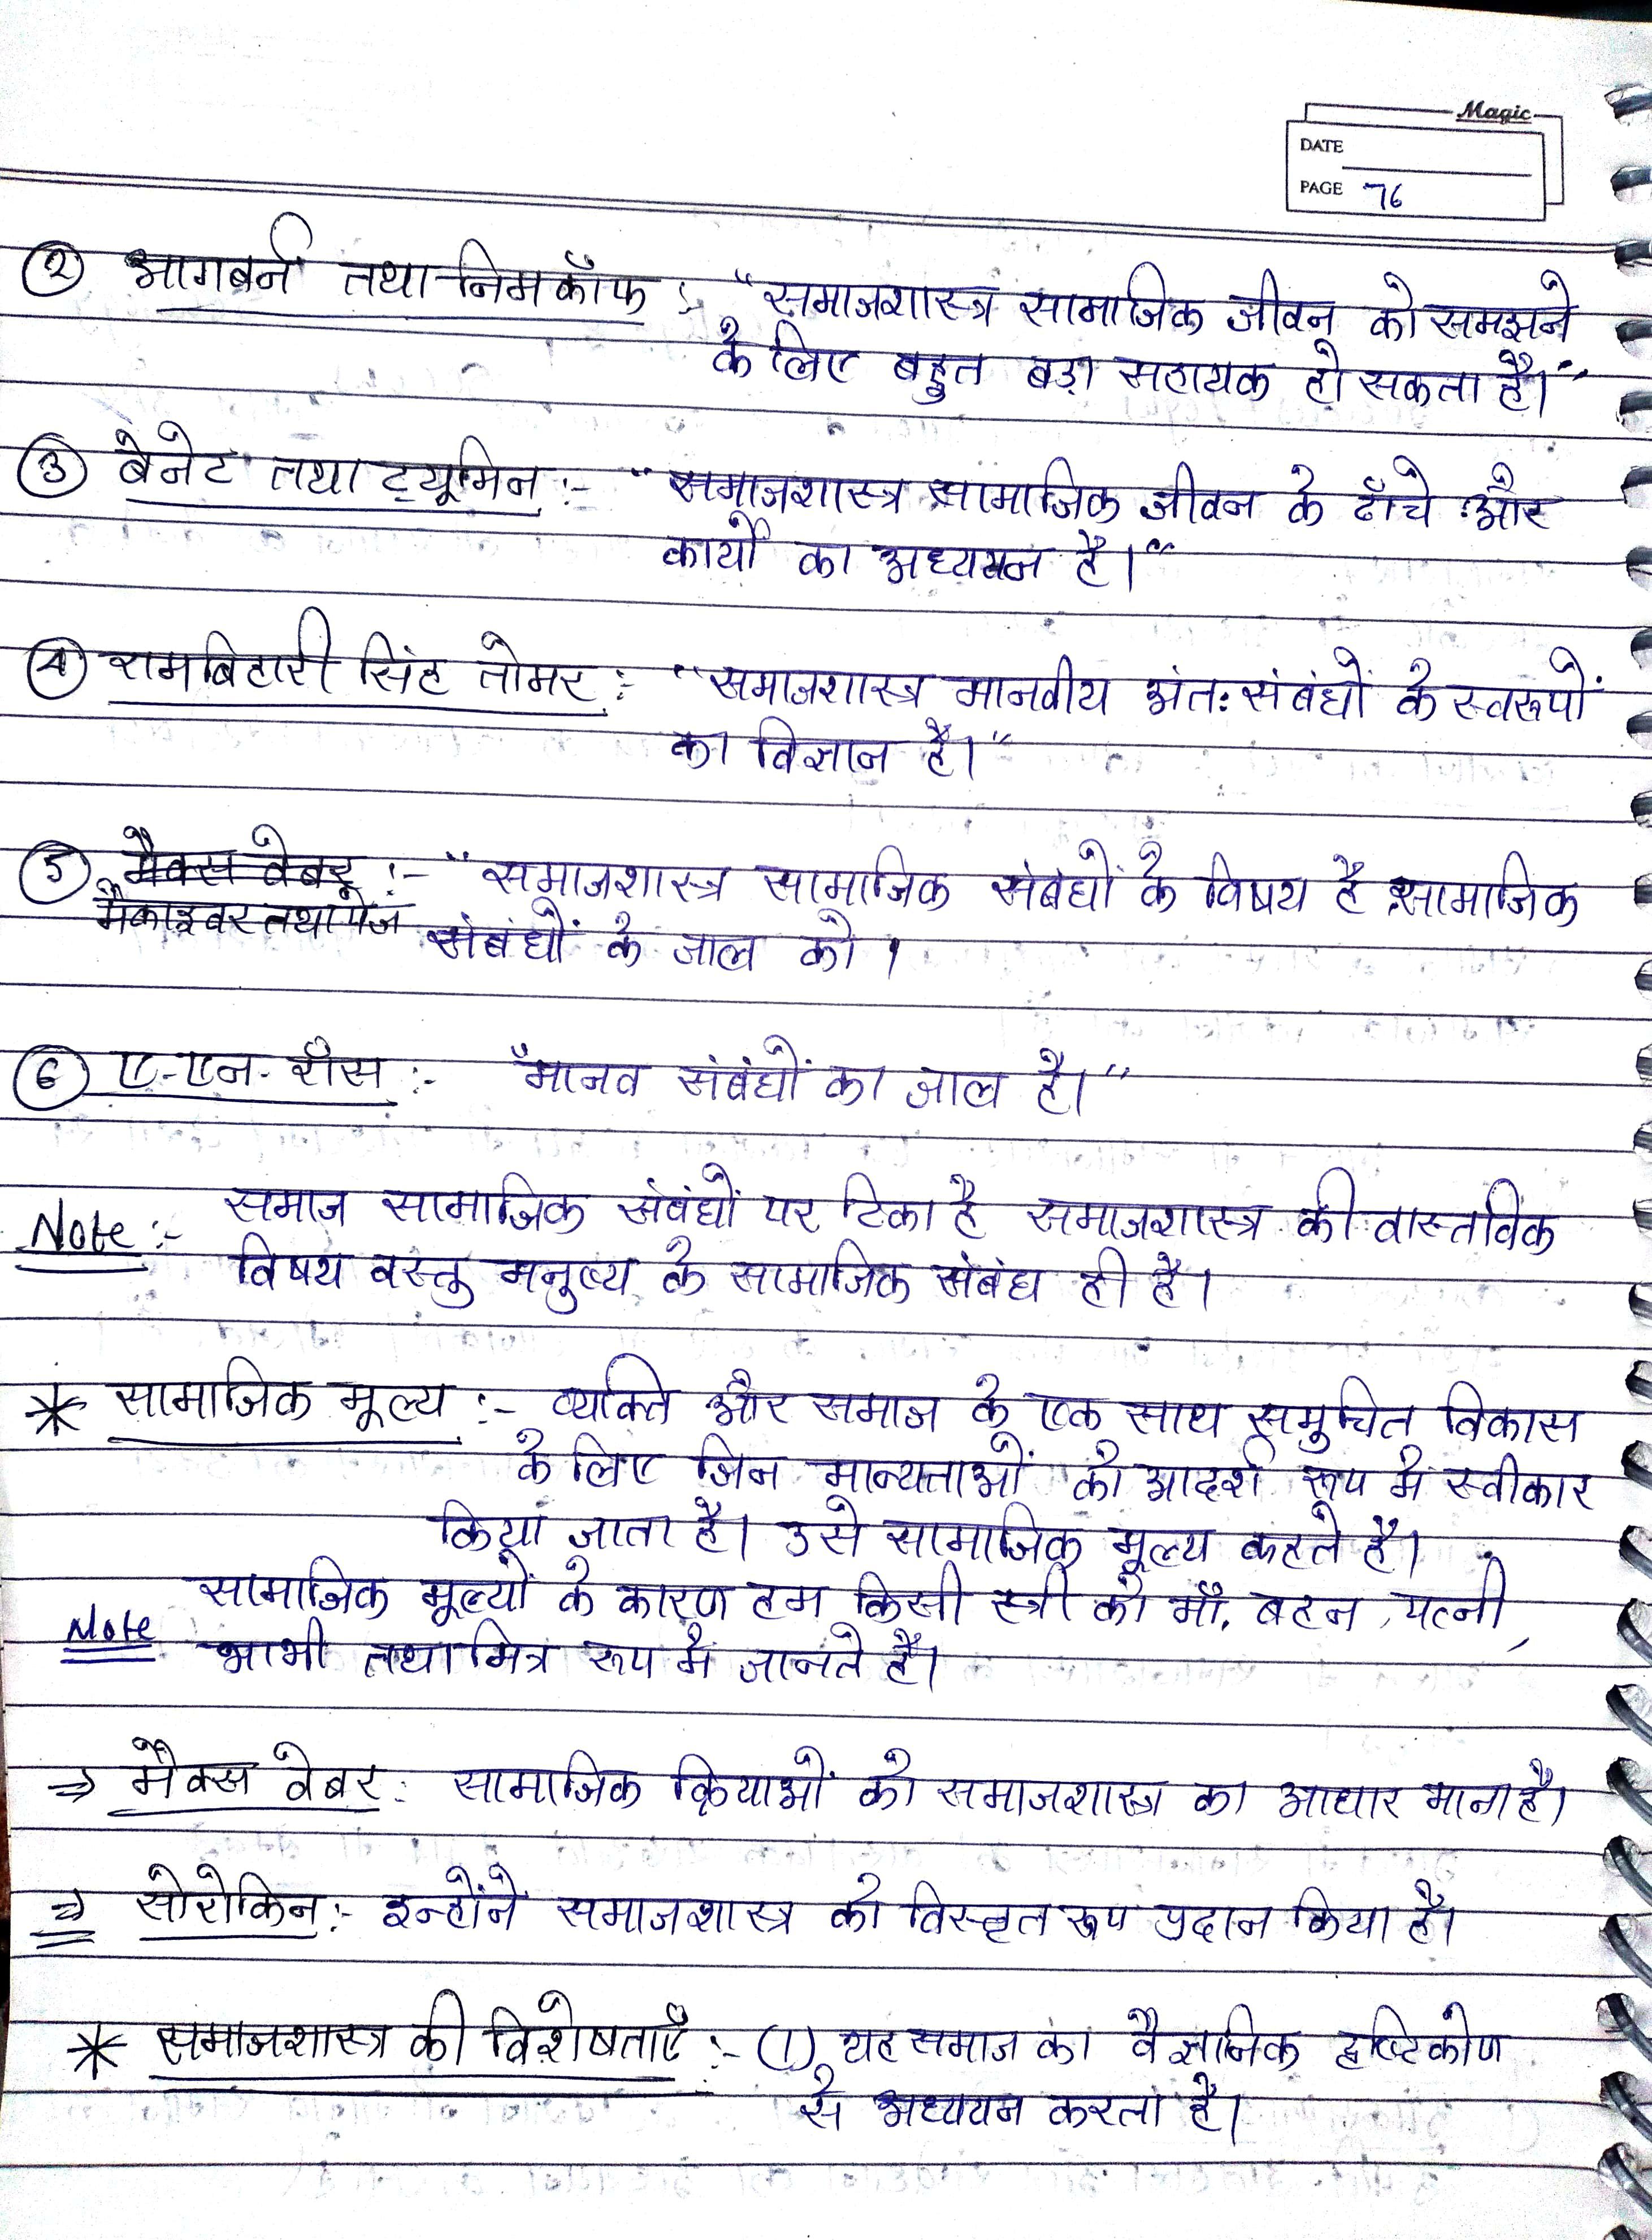 Magic
DATE
PAGE 76
② आगबर्न तथा निमकॉफ :- "समाजशास्त्र सामाजिक जीवन को समझने
के लिए बहुत बड़ा सहायक हो सकता है।"
③ बेनेट तथा ट्यूमिन :- "समाजशास्त्र सामाजिक जीवन के ढाँचे और
कार्यों का अध्ययन है।"
④ रामबिहारी सिंह तोमर :- "समाजशास्त्र मानवीय अंतः संबंधों के स्वरूपों
का विज्ञान है।"
⑤ मैक्स वेबर :- "समाजशास्त्र सामाजिक संबंधों के विषय है सामाजिक
मैकाइवर तथा पेज संबंधों के जाल को।
⑥ ए-एन-रॉस :- "मानव संबंधों का जाल है।"
Note :- समाज सामाजिक संबंधों पर टिका है समाजशास्त्र की वास्तविक
विषय वस्तु मनुष्य के सामाजिक संबंध ही है।
* सामाजिक मूल्य :- व्यक्ति और समाज के एक साथ समुचित विकास
के लिए जिन मान्यताओं को आदर्श रूप में स्वीकार
किया जाता है। उसे सामाजिक मूल्य कहते है।
सामाजिक मूल्यों के कारण हम किसी स्त्री को माँ, बहन, पत्नी,
Note भाभी तथा मित्र रूप में जानते हैं।
⇒ मैक्स वेबर : सामाजिक क्रियाओं को समाजशास्त्र का आधार माना है।
⇒ सोरोकिन :- इन्होंने समाजशास्त्र को विस्तृत रूप प्रदान किया है।
* समाजशास्त्र की विशेषताएँ :- (1) यह समाज का वैज्ञानिक दृष्टिकोण
से अध्ययन करता है।